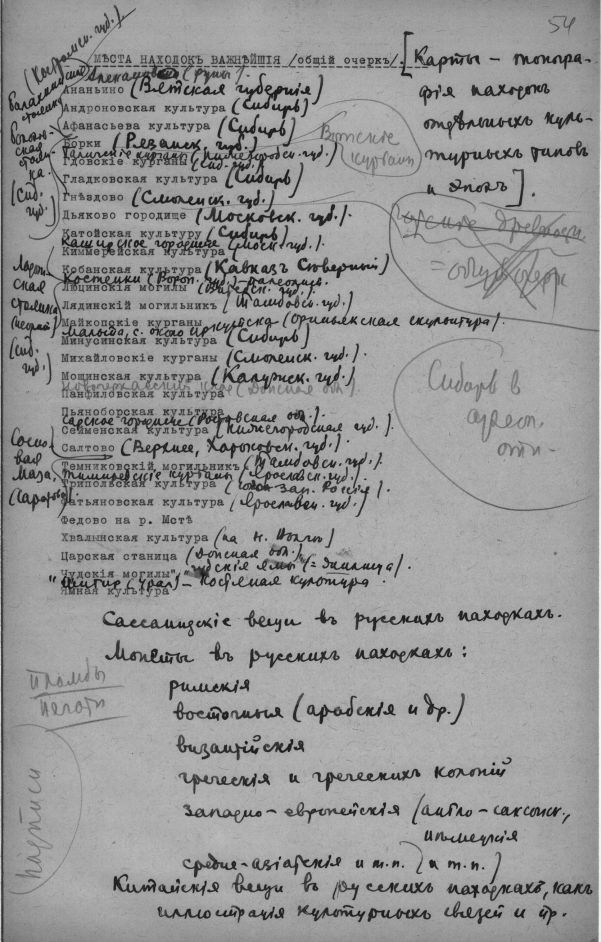 54
МѢСТА НАХОДОКЪ ВАЖНѢЙШІЯ /общій очеркъ/.
[Карты – топогра-
фія находокъ
отдѣльныхъ куль-
турныхъ типовъ
и эпохъ].
(Костромск. губ.)
Балахнинская
стоянка
(руны).
Ананьино (Вятская губернія)
Андроновская культура (Сибирь)
Афанасьева культура (Сибирь)
Борки (Рязанск. губ.)
Вятскіе
курганы
Гдовскіе курганы (СПб. губ.)
Гладковская культура (Сибирь)
Гнѣздово (Смоленск. губ.)
Дьяково городище (Московск. губ.).
Катойская культура (Сибирь)
Каширское городище (Моск. губ.).
Киммерійская культура
Кобанская культура (Кавказъ Сѣверный)
Костенки (Ворон. губ.) – палеолит.
Люцинскій могильникъ
Лядинскій могильникъ (Тамбовск. губ.)
Майкопскіе курганы
Мальта, с. около Иркутска (Ориньякская скульптура).
Минусинская культура (Сибирь)
Михайловскіе курганы (Смоленск. губ.).
Мощинская культура (Калужск. губ.).
Новочеркасскій кладъ (Донская обл.)
Панфиловская культура
Пьяноборская культура
Сарское городище (Ростовская обл.)
Сейменская культура (Нижегородская губ.)
Салтово (Верхнее, Харьковск. губ.)
Темниковскій могильникъ (Тамбовск. губ.)
Тимиревскіе курганы (Ярославск. губ.)
Трипольская культура (Юго-Зап. Россія).
Фатьяновская культура (Ярославск. губ.)
Федово на р. Мстѣ
Хвалынская культура (на Н. Волгѣ)
Царская станица (Донская обл.)
Чудскія могилы
Чудскія ямы
"Шигир (Урал) – костяная культура
Ямная культура
Ладож-
ская
стоянка
(СПб.
губ.)
Сосно-
вая
Маза,
= общій очерк
Сибирь в
Сассанидскіе вещи въ русскихъ находкахъ.
Монеты въ русскихъ находкахъ:
римскія
восточныя (арабскія и др.)
византійскія
греческія и греческихъ колоній
западно-европейскія (англо-саксонск.,
нѣмецкія
и т.п.)
средне-азіатскія и т.п.
Китайскія вещи въ русскихъ находкахъ, какъ
иллюстрація культурныхъ связей и пр.
Пломбы
Печати
Надписи